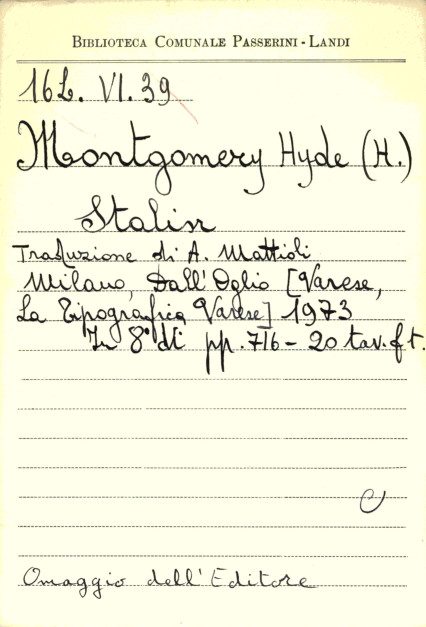 BIBLIOTECA COMUNALE PASSERINI - LANDI
16L. VI. 39
Montgomery Hyde (H.)
Stalin
Traduzione di A. Mattioli
Milano, Dall'Oglio [Varese,
La Tipografica Varese] 1973
In 8° di pp. 716 - 20 tav. f.t.
C
Omaggio dell'Editore